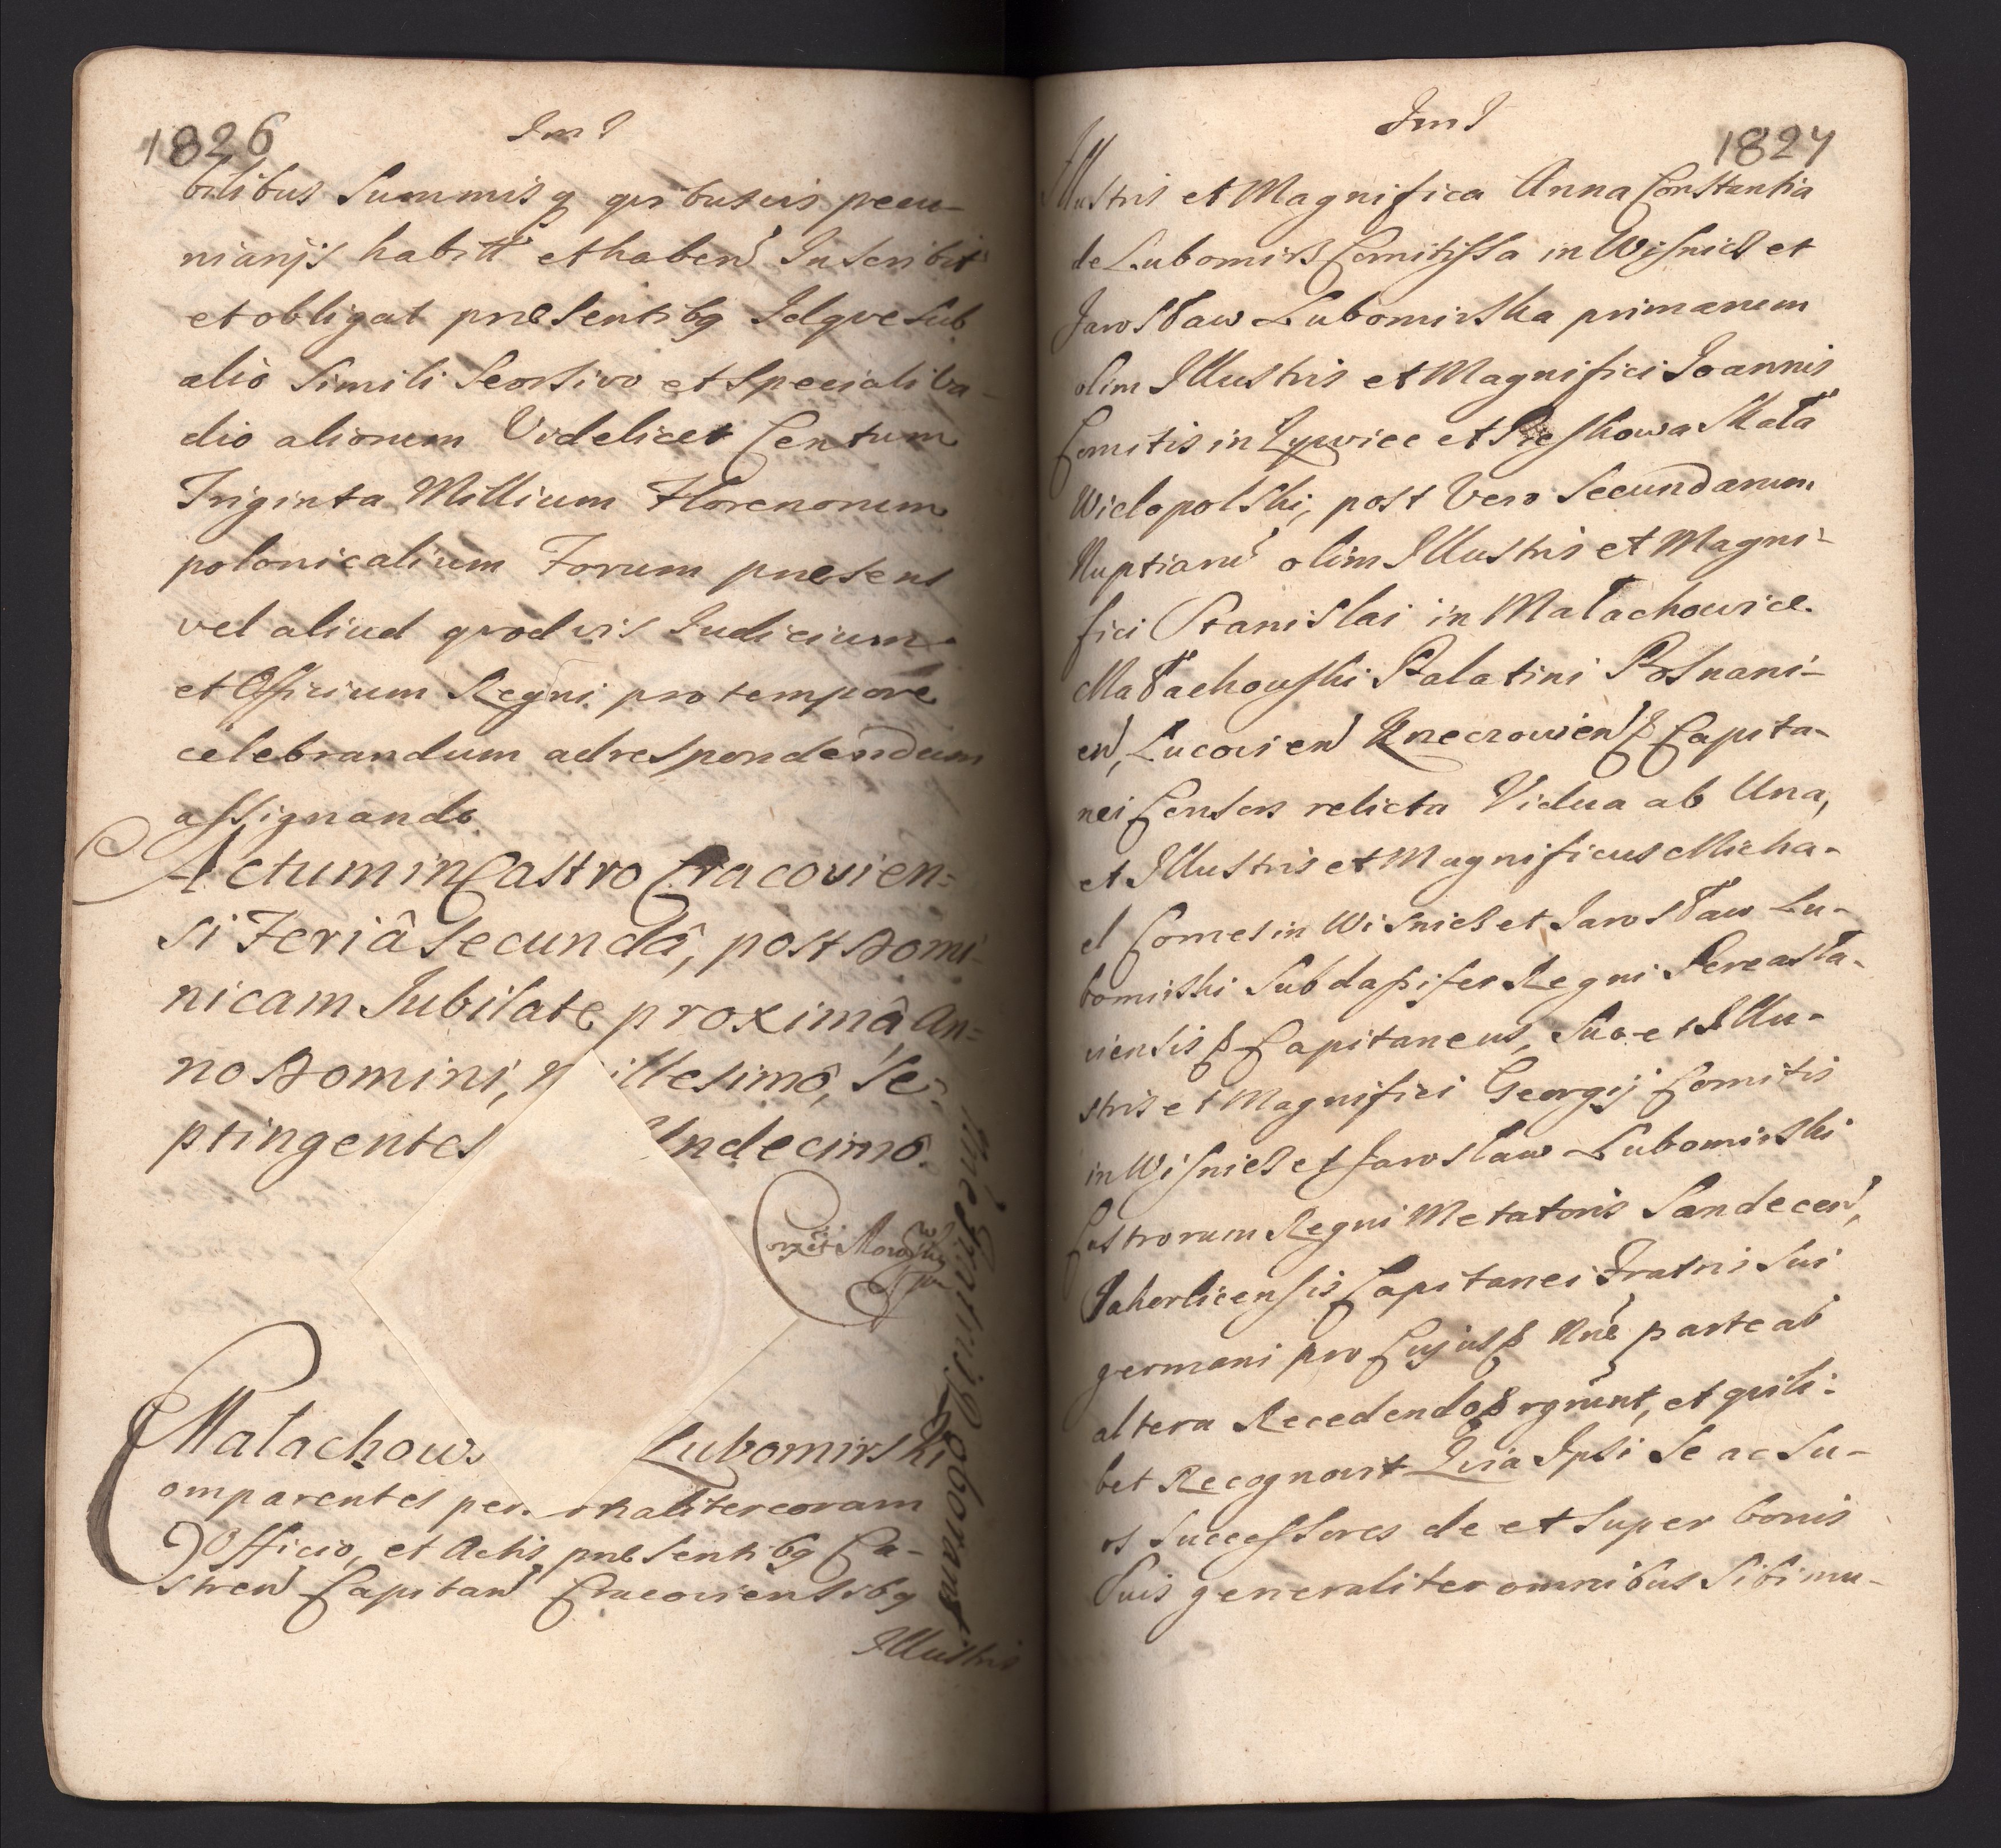 1826
bilibus Summisq quibusvis pecu-
niarijs habitt et habend Inscribit
et obligat pnẽsentibq Idqve sub
aliô Simili Seorsivo et Speciali va-
dio aliorum Videlicet Centum
Triginta Millium Florenorum
polonicalium Forum pnẽsens
vel aliud qvodvis Iudicium
et Officium Regni pro tempore
celebrandum ad respondendum
assignando
Actum in Castro Cracovien=
si Feriâ Secundâ, post Domi-
nicam Iubilate proximâ An=
no Domini, millesimô, Se-
ptingentes Undecimô.
Malachow Lubomirski
Comparentes per onaliter coram
Officio, et Actis pnẽsentibq Ca-
stren Capitan Cracoviensibq
Illustris
1827
Illustris et Magnifica Anna Constantia
de Lubomirz Comitissa in Wisnicz et
Jarosław Lubomirska primarum
olim Illustris et Magnifici Joannis
Comitis in Zywiec et Pieskowa Skała
Wielopolski, post Vero Secundarum
Nuptiarũ olim Illustris et Magni-
fici Stanislai in Małachowice
Małachowski Palatini Posnani-
en, Lucovien Krzeczowien Capita-
nei Consors relicta Vidua ab Una,
et Illustris et Magnificus Micha-
el Comes in Wisnicz et Jarosław Lu-
bomirski Subdapifer Regni Pereasła-
viensis Capitaneus, Suo et Illu-
stris et Magnifici Georgij Comitis
in Wisnicz et Jarosław Lubomirski
Castrorum Regni Metatoris Sandecen,
Capitanei Fratris Sui
germani pro Cujus parte ab
altera Recedendo et quili-
bet Recognovit Quia Ipsi Se ac Su-
os Successores de et Super bonis
Suis generaliter omnibus Sibi mu-